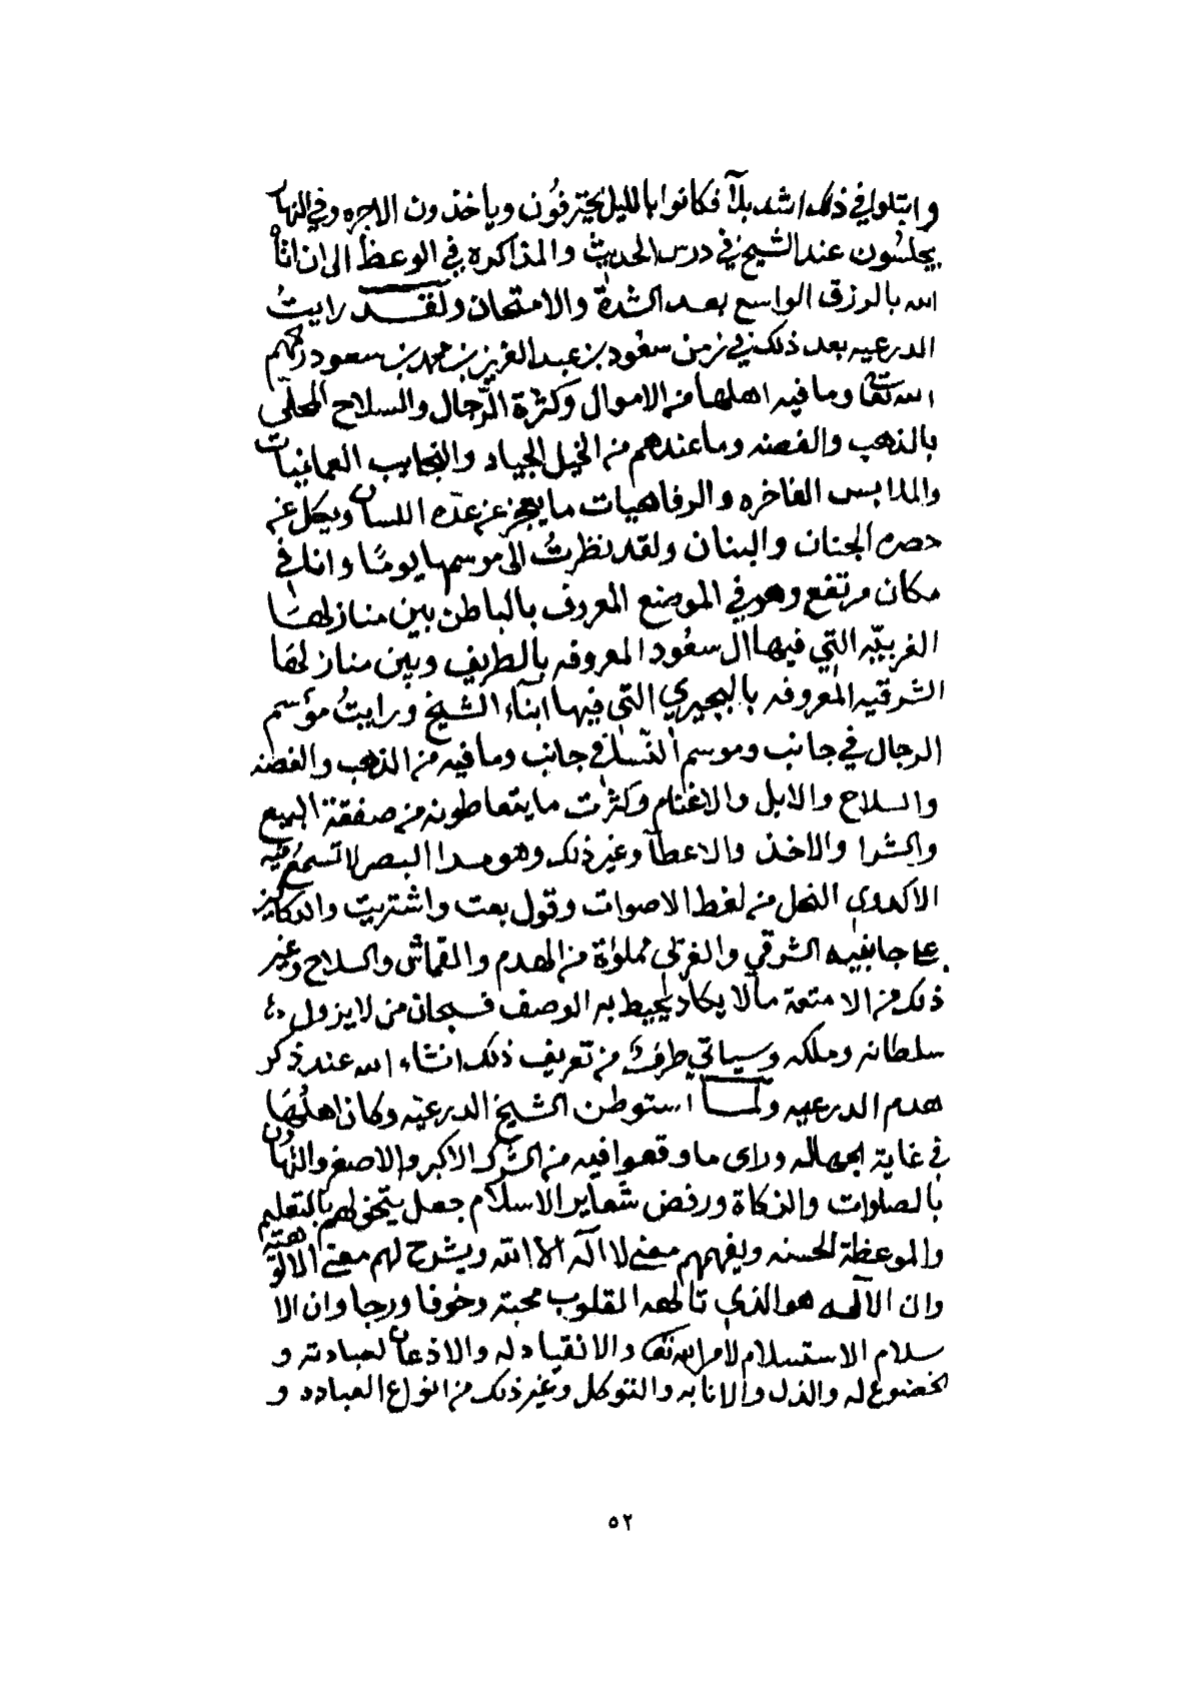 وابتلوا في ذلك اشد بلآ فكانوا بالليل يحترفون وياخذون الاجره وفي النهار
يجلسون عند الشيخ في درس الحديث والمذاكرة في الوعظ الى ان اتاهم
الله بالرزق الواسع بعد الشدة والامتحان ولقد رايت
الدرعيه بعد ذلك في زمن سعود بن عبد العزيز بن محمد بن سعود رحمهم
الله تعالى وما فيه اهلها من الاموال وكثرة الرجال والسلاح المحلى
بالذهب والفضه وما عندهم من الخيل الجياد والنجايب العمانيات
والملابس الفاخره والرفاهيات ما يعجز عن عده اللسان ويكل عن
حصره الجنان والبنان ولقد نظرت الى موسمها يومًا وانا في
مكان مرتفع وهو في الموضع المعروف بالباطن بين منازلها
الغربيّه التي فيها ال سعود المعروفه بالطريف وبين منازلها
الشرقيه المعروفه بالبجيري التي فيها ابنآء الشيخ ورايت موسم
الرجال في جانب وموسم النسا في جانب وما فيه من الذهب والفضه
والسلاح والابل والاغنام وكثرت ما يتعاطونه من صفقة البيع
والشرا والاخذ والاعطآ وغير ذلك وهو مدا البصر لا تسمع فيه
الا كدوي النحل من لغط الاصوات وقول بعت واشتريت والدكاكين
على جانبيه الشرقي والغربي مملوة من الهدم والقماش والسلاح وغير
ذلك من الامتعة مالا يكاد يحيط به الوصف فسبحان من لا يزول
سلطانه وملكه وسياتي طرف من تعريف ذلك انشاء الله عند ذكر
هدم الدرعيه ولما استوطن الشيخ الدرعيه وكان اهلها
في غاية الجهاله وراى ما وقعوا فيه من الشرك الاكبر والاصغر والتهاون
بالصلوات والزكاة ورفض شعاير الاسلام جعل يتخولهم بالتعليم
والموعظة الحسنه ويفهمهم معنى لا اله الا الله ويشرح لهم معنى الالوهيته
وان الآله هو الذي تالهه القلوب محبته وخوفا ورجا وان الا
سلام الاستسلام لامر الله تعالى والانقياد له والاذعان لعبادته و
الخضوع له والذل والانابه والتوكل وغير ذلك من انواع العباده و
٥٢